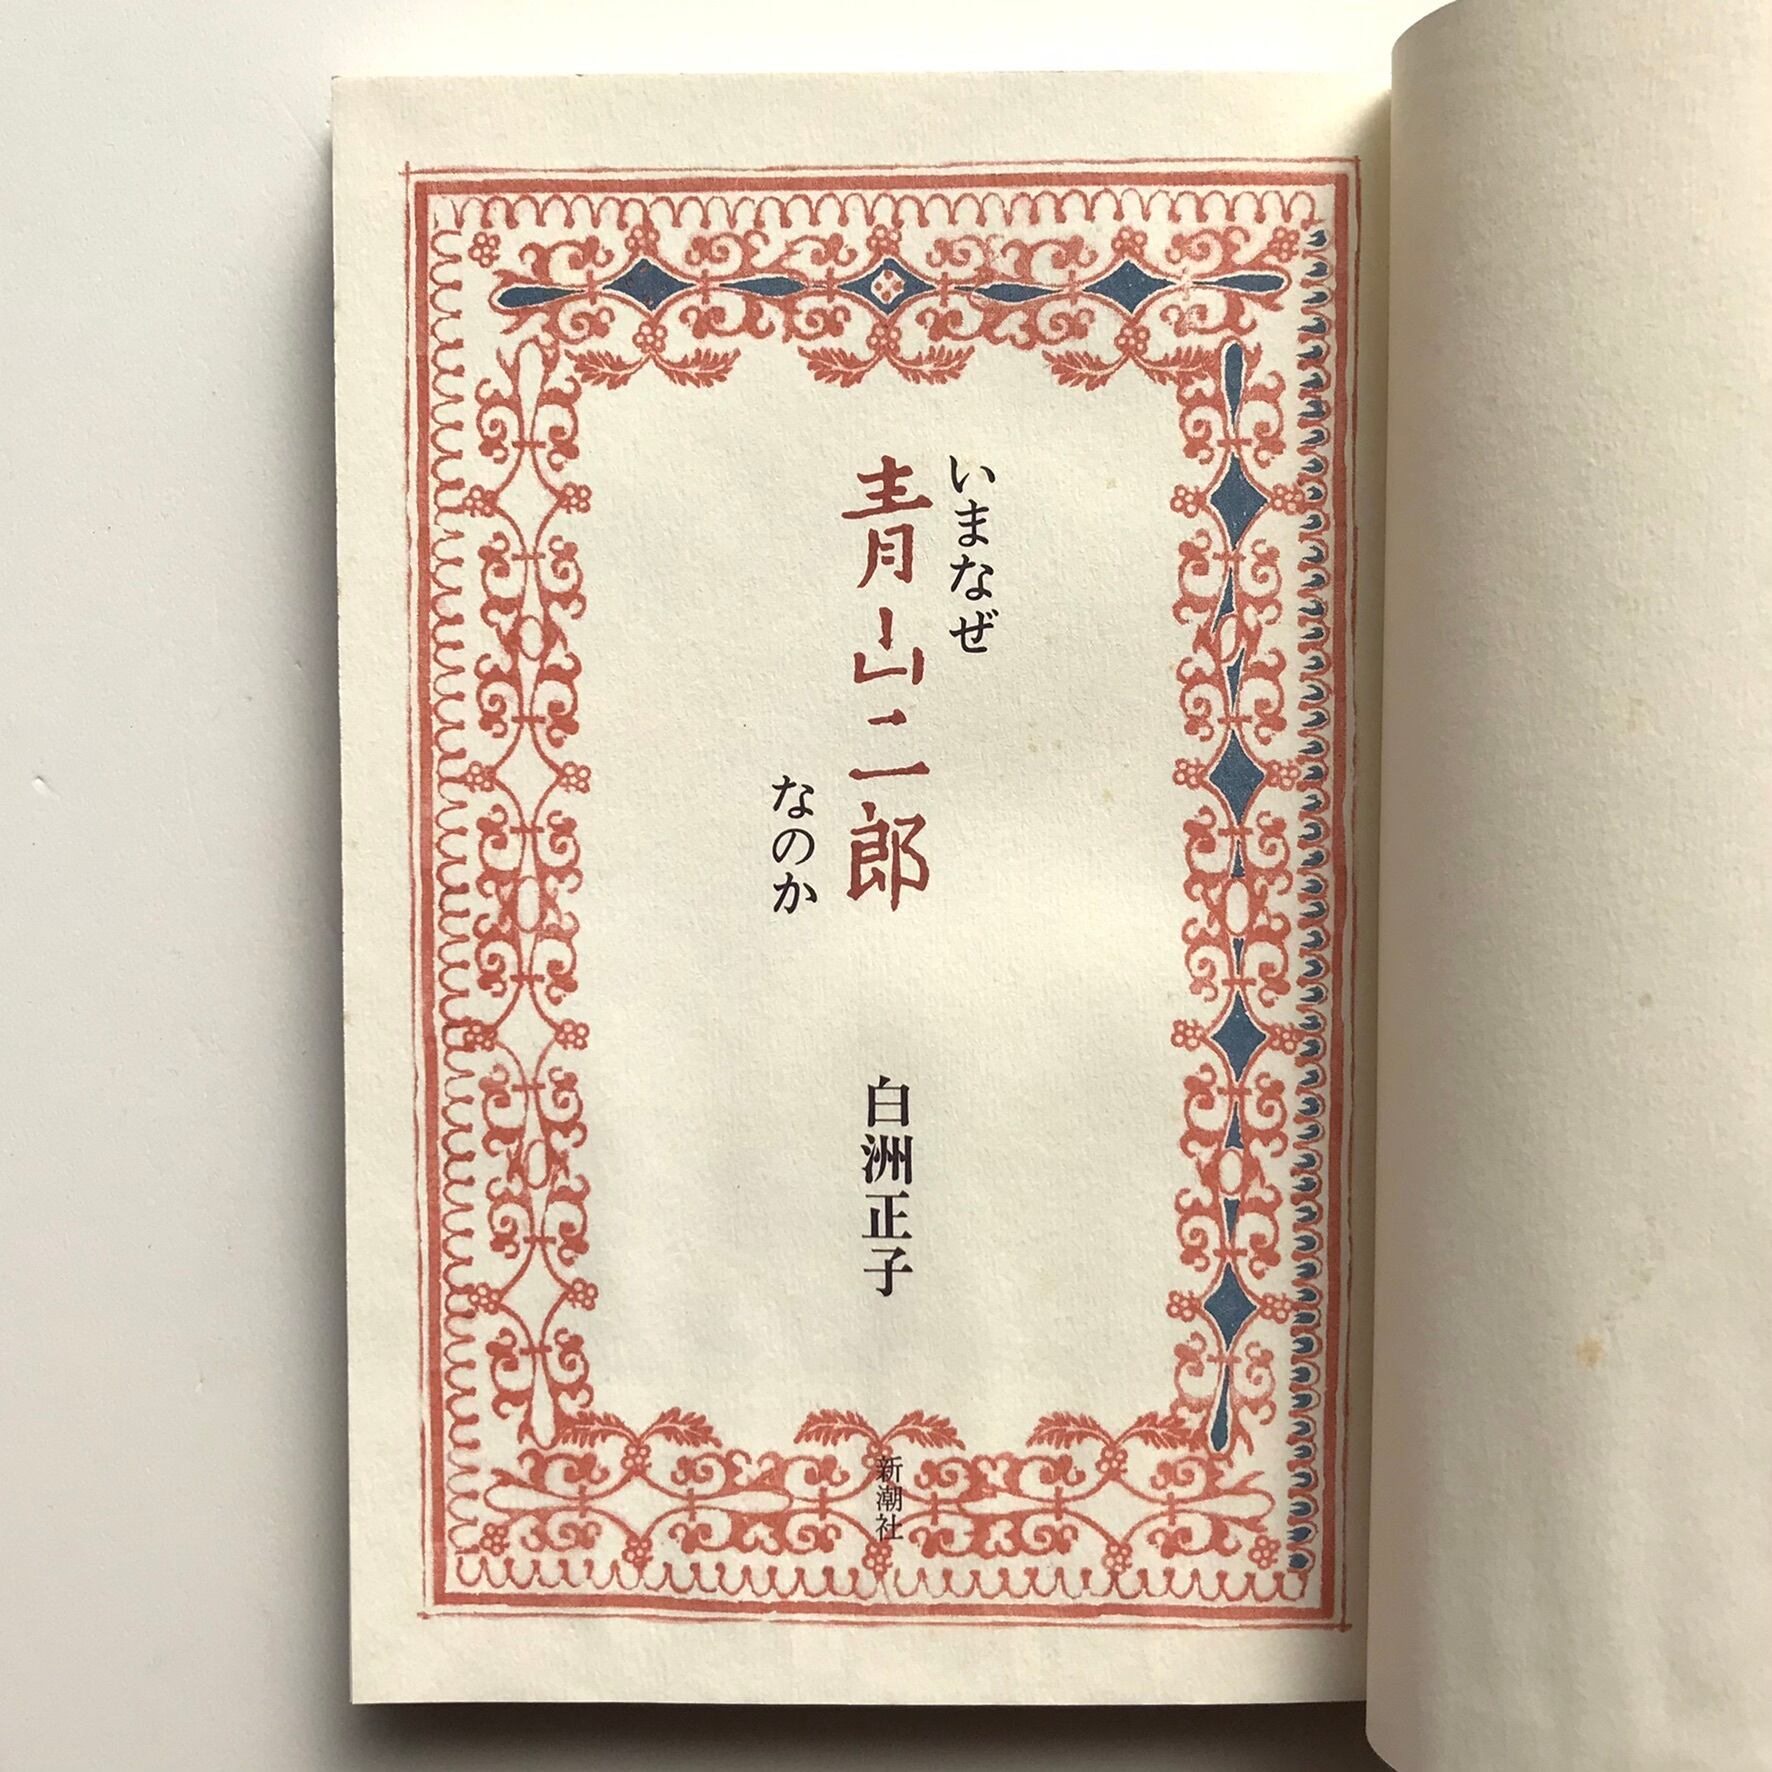 いまなぜ
青山二郎
なのか
白洲正子
新潮社